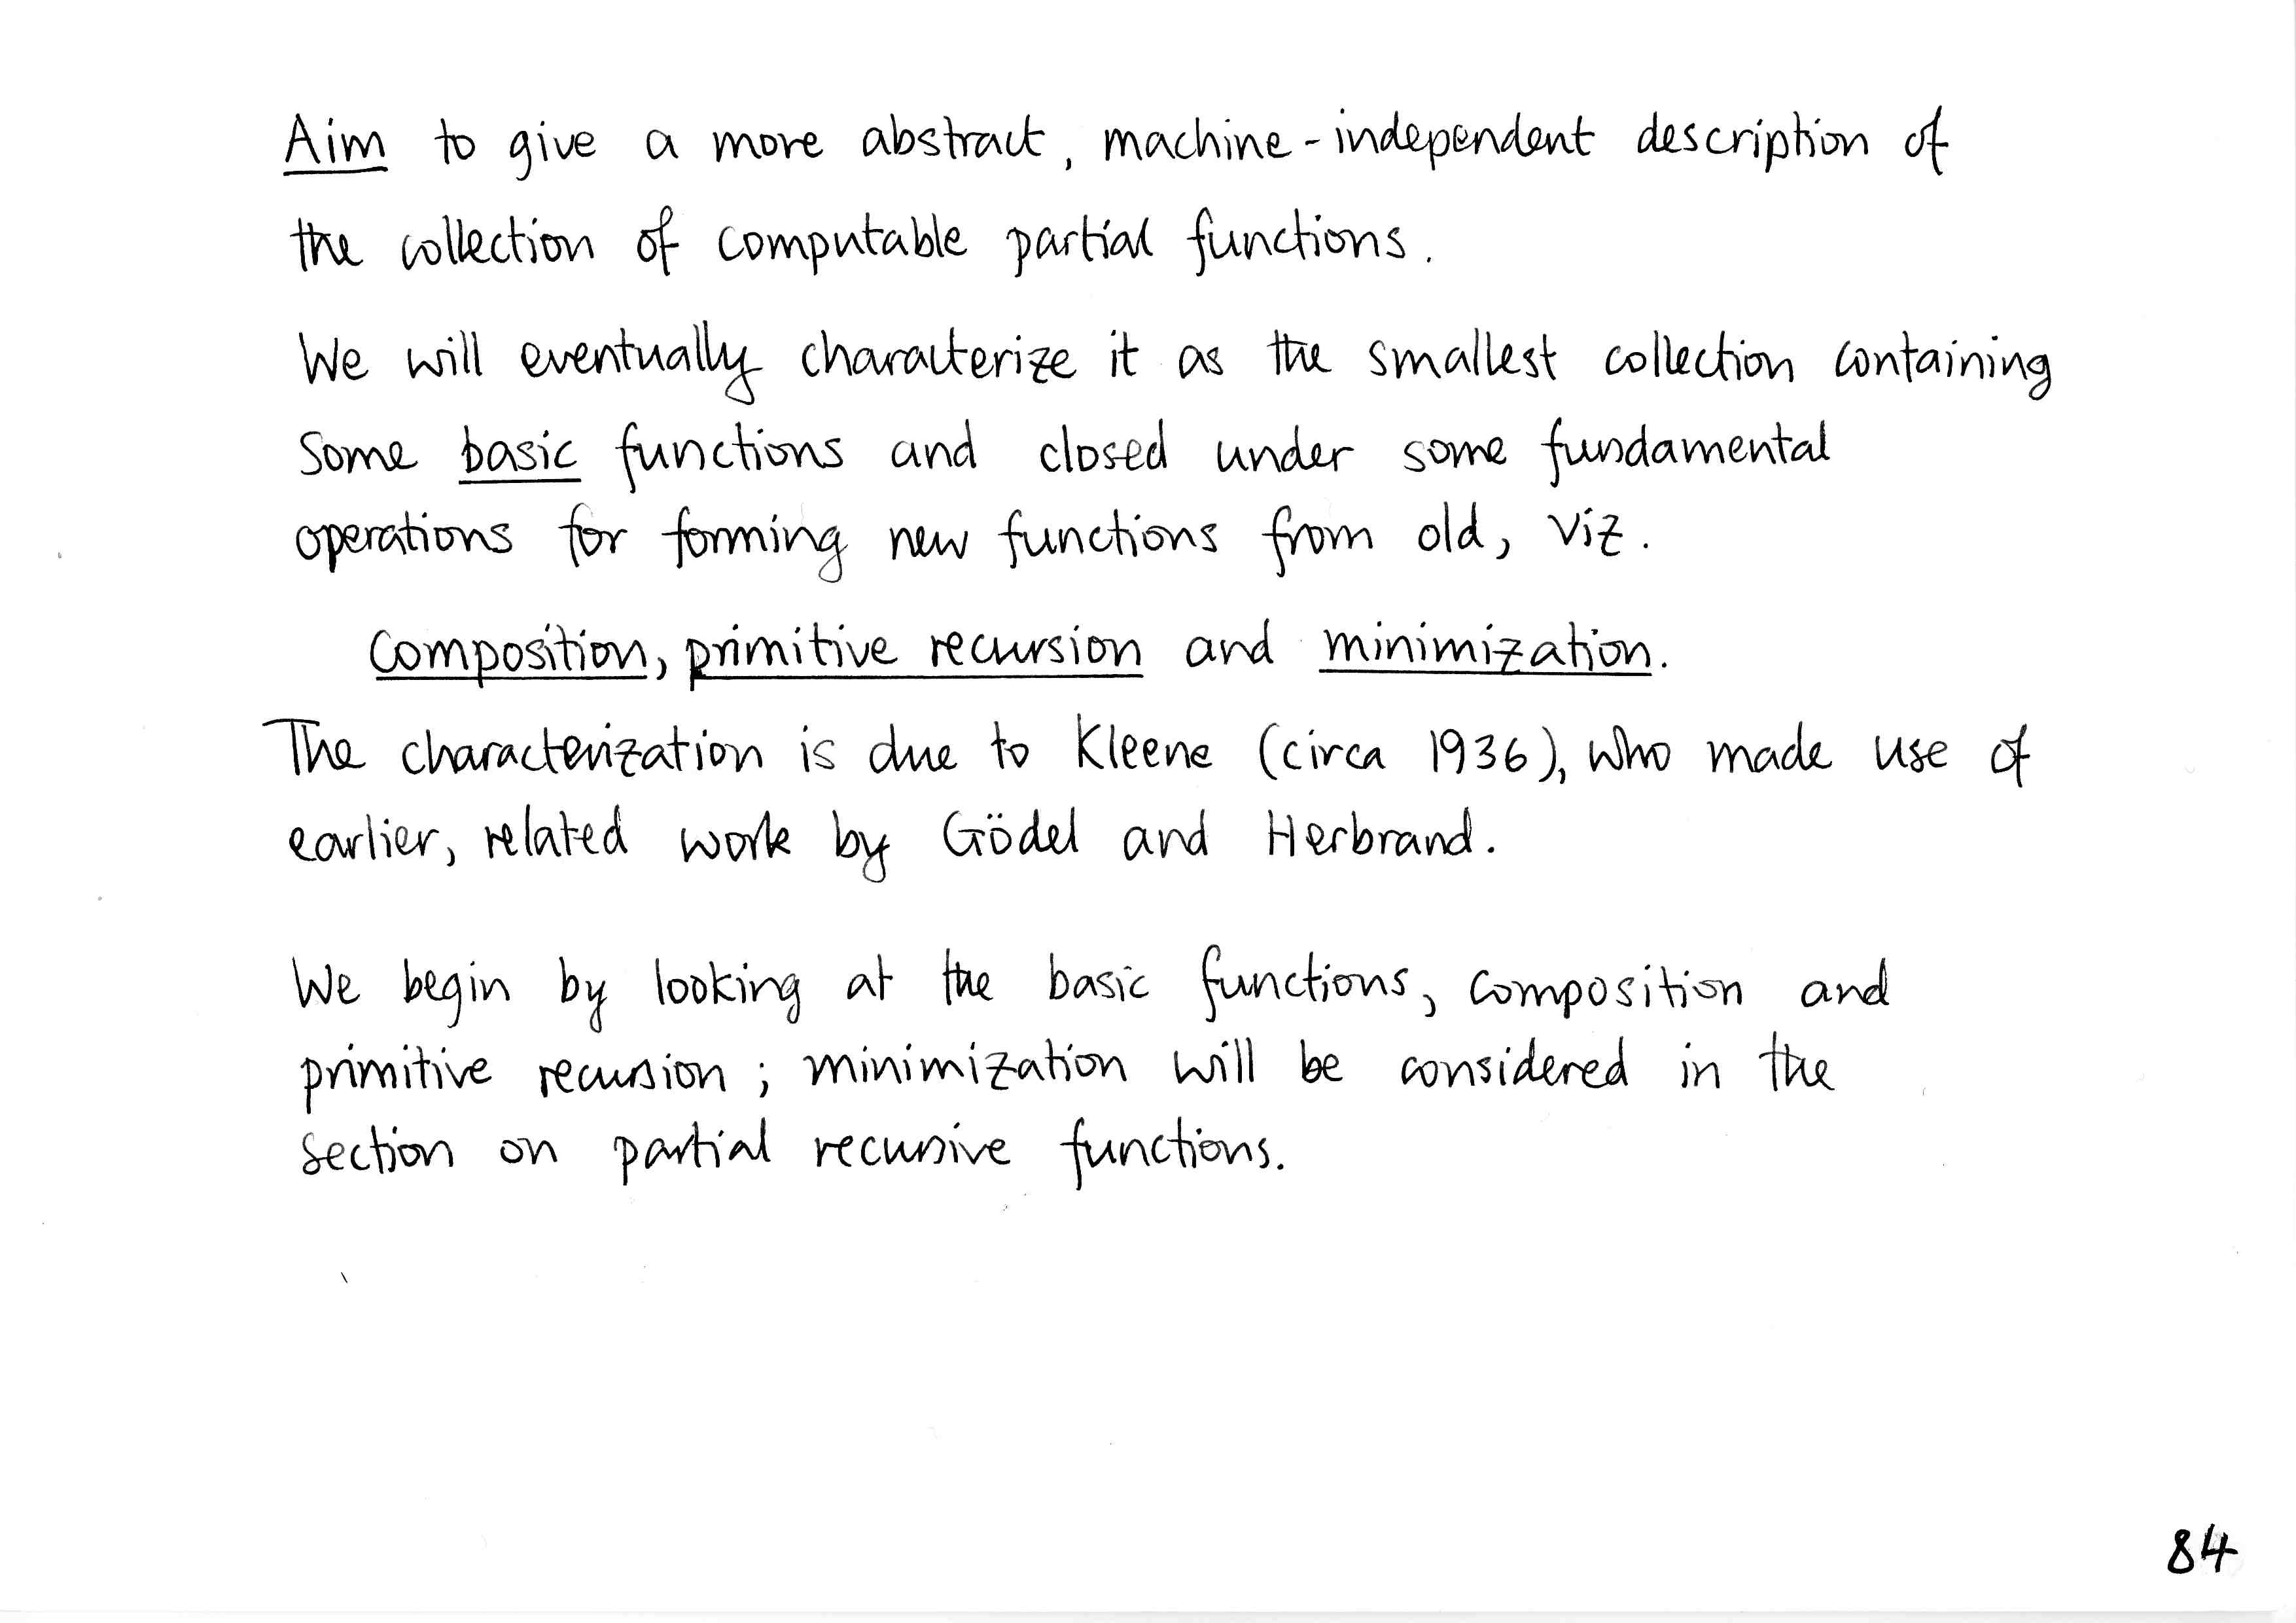 Aim to give a more abstract, machine-independent description of
the collection of computable partial functions.
We will eventually characterize it as the smallest collection containing
some basic functions and closed under some fundamental
operations for forming new functions from old, viz.
composition, primitive recursion and minimization.
The characterization is due to Kleene (circa 1936), who made use of
earlier, related work by Gödel and Herbrand.
We begin by looking at the basic functions, composition and
primitive recursion; minimization will be considered in the
section on partial recursive functions.
84